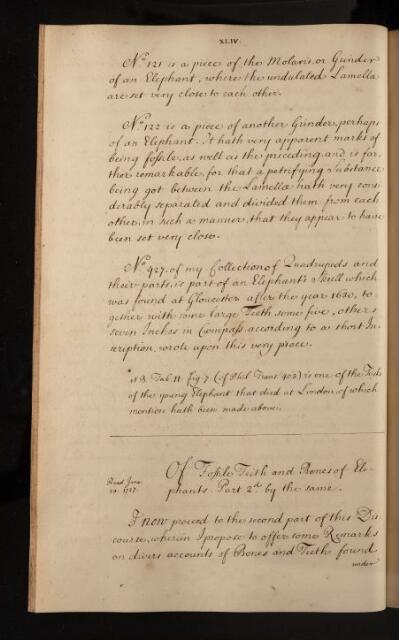 XLIV.
No 121 is a piece of the Molaris, or Grinder
of an Elephant, where the undulated Lamella
are set very close to each other.
No 122 is a piece of another Grinder, perhaps
of an Elephant. It hath very apparent marks of
being fossile, as well as the preceding, and is far-
ther remarkable, for that a petrifying Substance
being got between the Lamella hath very consi
derably separated and divided them from each
other, in such a manner, that they appear to have
been set very close.
No 427. of my Collection of Quadrupeds and
their parts, is part of an Elephant's Skull which
was found at Gloucester after the year 1630, to-
gether with some large Teeth, some five, others
seven Inches in Compass, according to a short In-
scription, wrote upon this very piece.
NB. Tab. 11. fig. 7 (of Phil Trans 402) is one of the Teeth
of the young Elephant that died at London, of which
mention hath been made above.
Of Fossile Teeth and Bones of Ele-
Read June
phants. Part 2d by the same.
1727.
I now proceed to the second part of this Dis
course, wherein I propose to offer some Remarks
on divers accounts of Bones and Teeth found
under